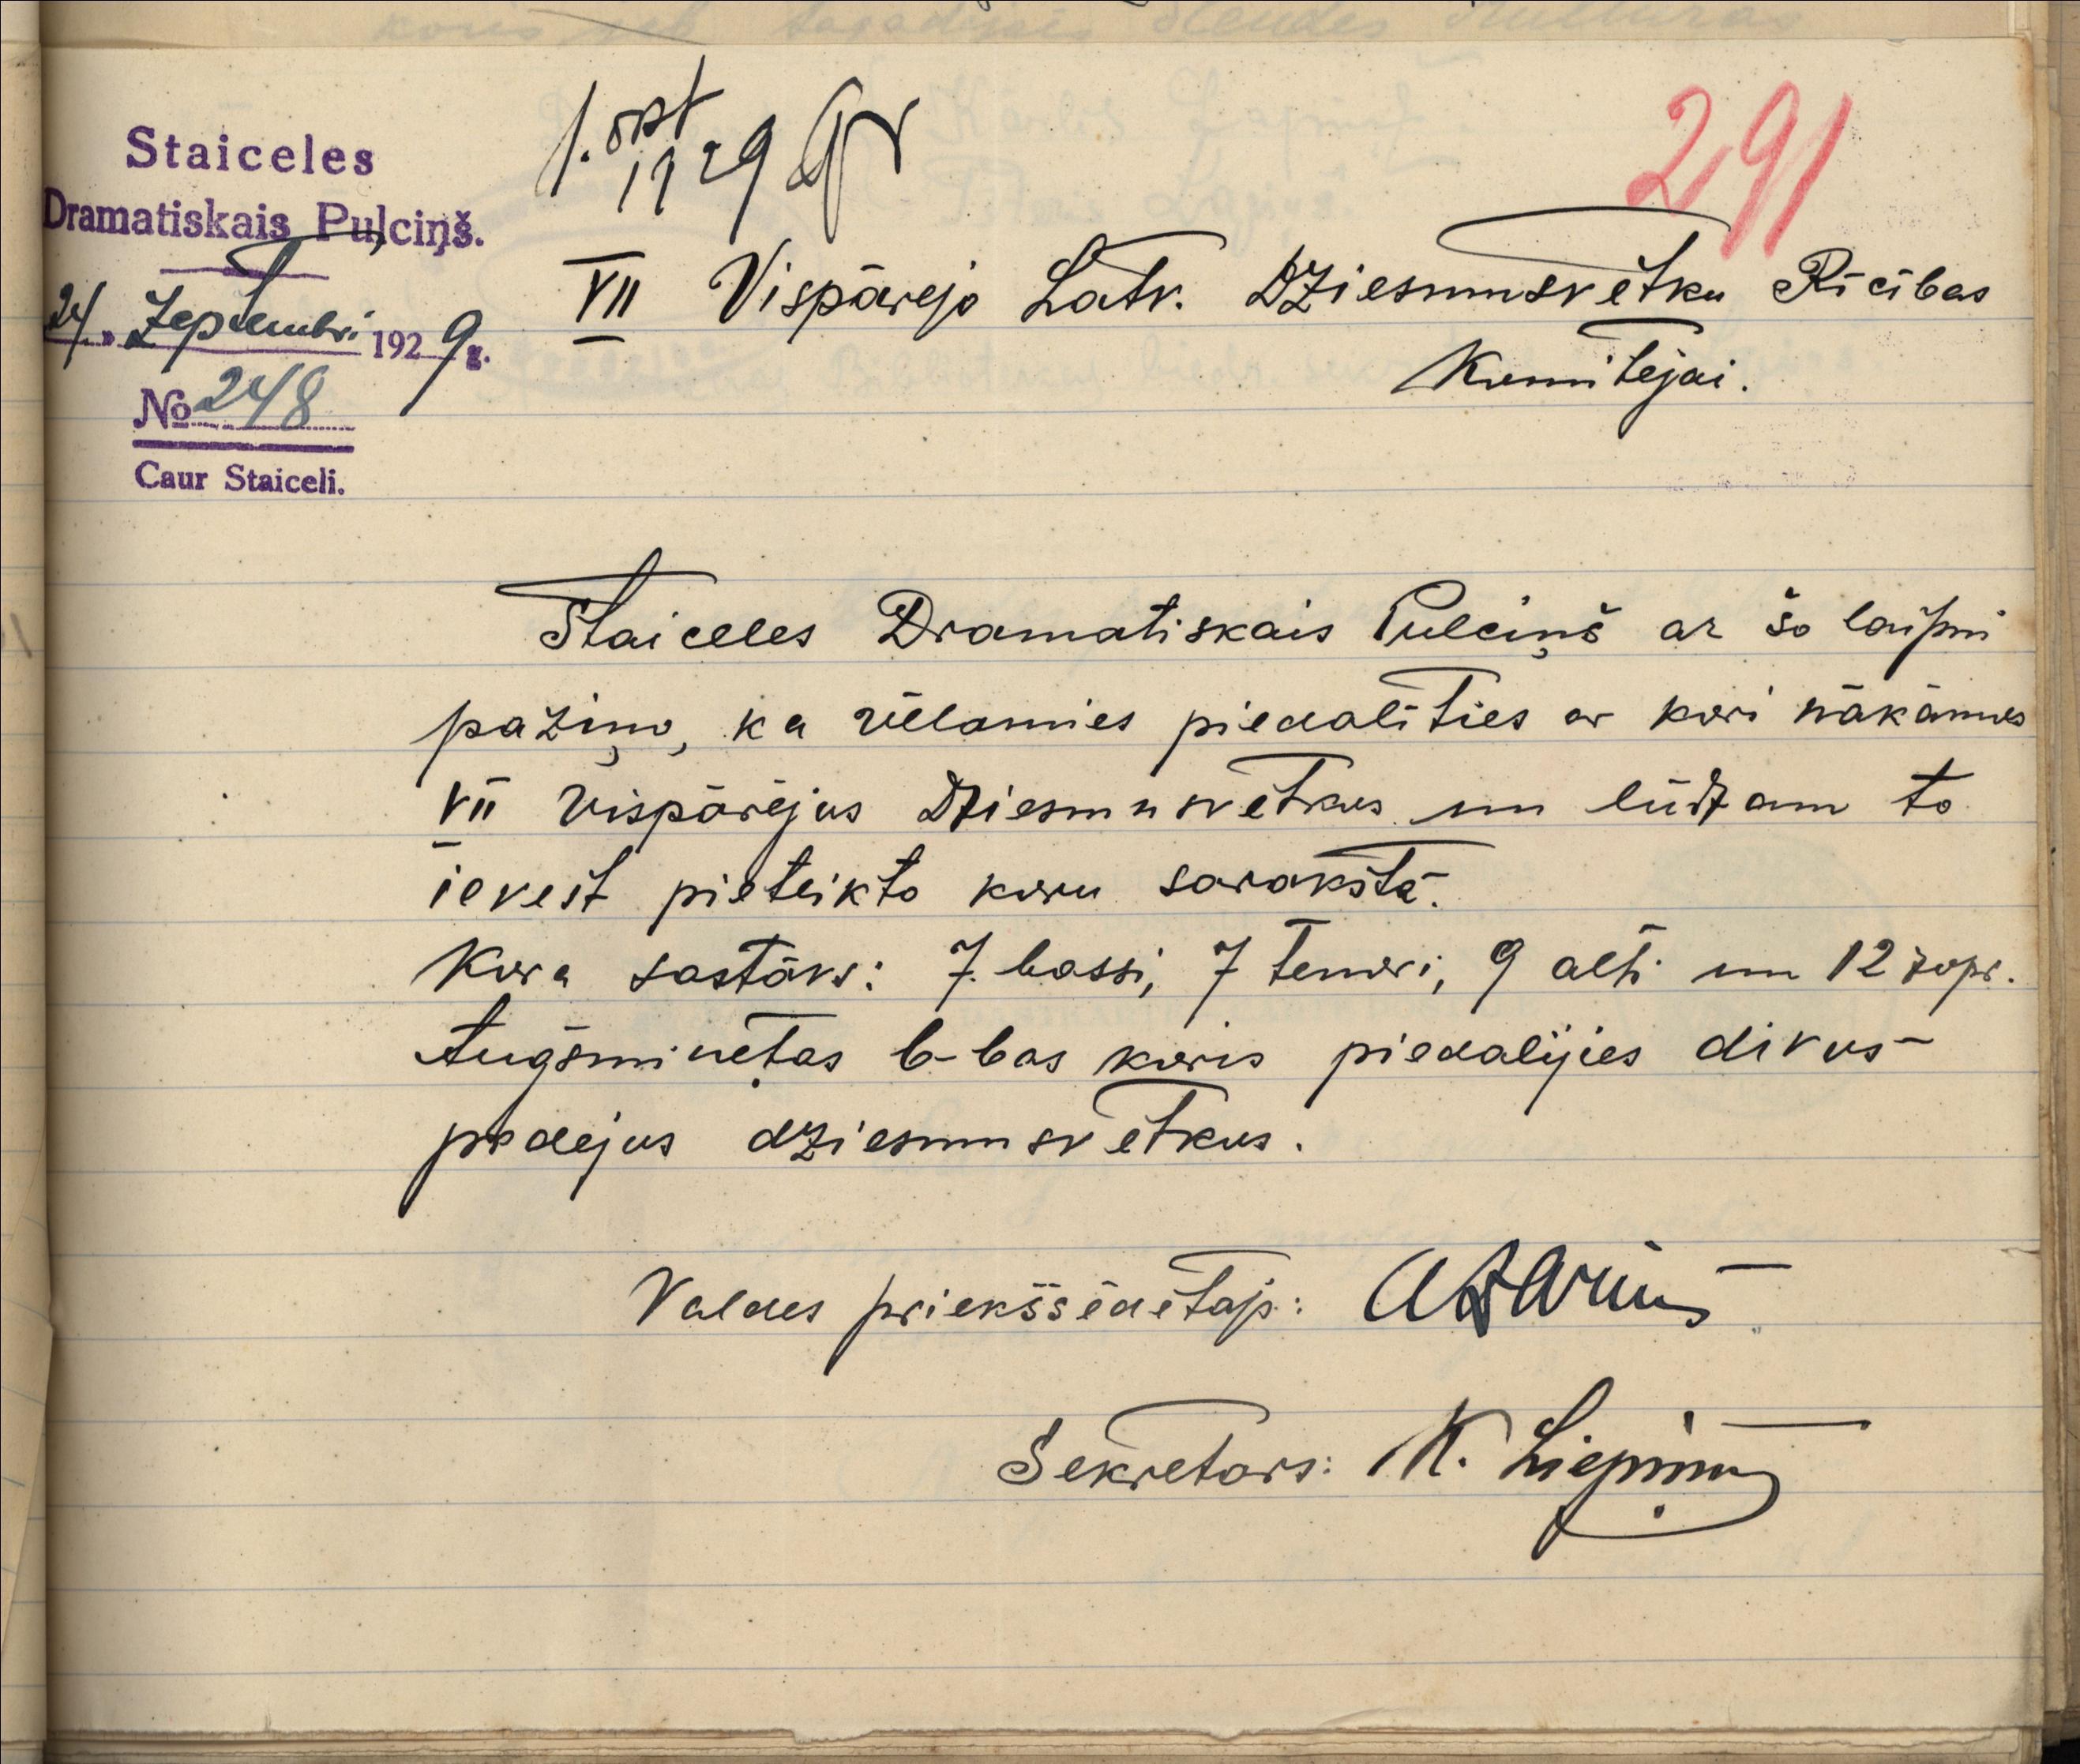 Staiceles
Dramatiskais Puļciņš.
24 " Zeptembri 1929 g.
№ 248
Caur Staiceli.
1. okt
1929
291
VII Vispārejo Latv. Dziesmusvētku Rīcības
Komitejai.
Staiceles Dramatiskais Pulciņš ar šo laipni
paziņo, ka vēlamies piedalīties ar kori nākāmos
VII Vispārējos Dziesmusvētkos un lūdzam to
ievest pieteikto koru sarakstā.
Kora sastāvs: 7 bassi, 7 tenori, 9 alti un 12 sopr.
Augšminētas b-bas koris piedalījies divos
pēdejos dziesmusvētkos.
Valdes priekšsēdētājs:
Sekretars: K. Liepiņš